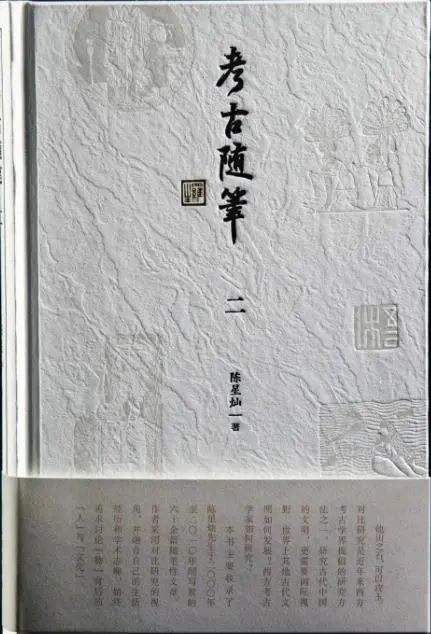 考古随筆
二
陈星灿 著
他山之石，可以攻玉。
对比研究是近年来西方
考古学界提倡的研究方
法之一。研究古代中国
的文明，更需要国际视
野。世界上其他古代文
明如何发展？西方考古
学家如何研究？
本书主要收录了
陈星灿先生于二〇〇〇年
至二〇一〇年间写就的
六十余篇随笔性文章，
作者采用对比研究的视
角，并融合自己的生活
经历和学术志趣，始终
追求讨论“物”背后的
“人”与“文化”。